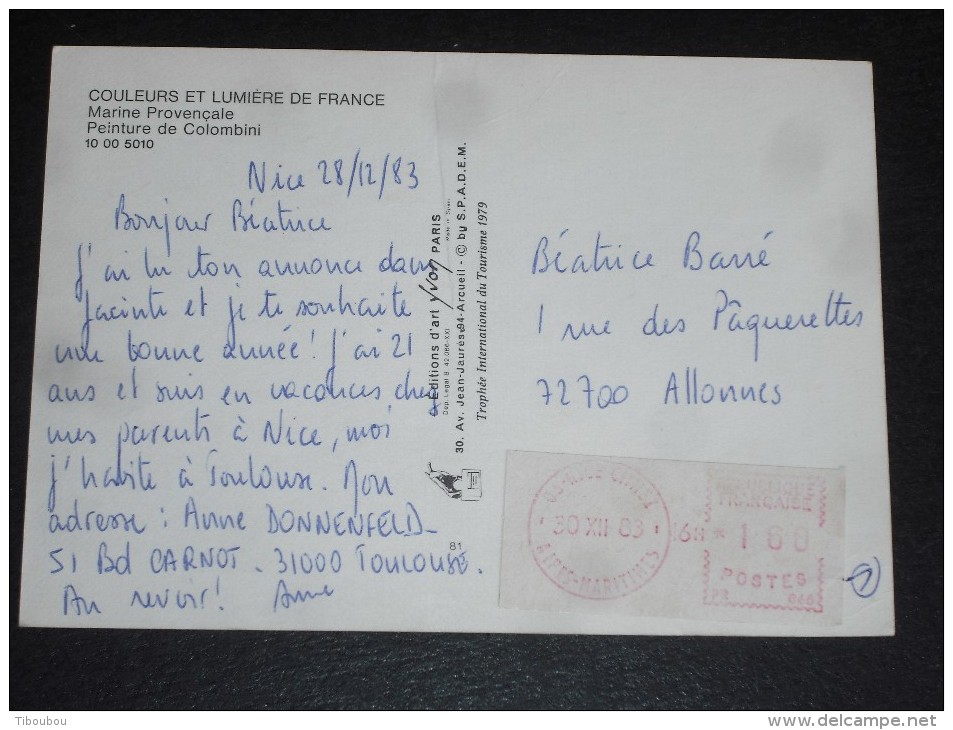 COULEURS ET LUMIÈRE DE FRANCE
Marine Provençale
Peinture de Colombini
10 00 5010
Nice 28/12/83
Bonjour Béatrice
J'ai lu ton annonce dans
Jacinte et je te souhaite
une bonne année! J'ai 21
ans et suis en vacances chez
mes parents à Nice, moi
j'habite à Toulouse. Mon
adresse : Anne DONNENFELD-
51 Bd CARNOT. 31000 TOULOUSE.
Au revoir! Anne
Editions d'art Yvon PARIS
Made in
30. Av. Jean-Jaurès 94-Arcueil - © by S.P.A.D.E.M.
Trophée International du Tourisme 1979
81
Béatrice Barré
1 rue des Pâquerettes
72700 Allonnes
30 XII 83
ALPES-MARITIMES
FRANCAISE
1 60
POSTES
Tiboubou
www.delcampe.net